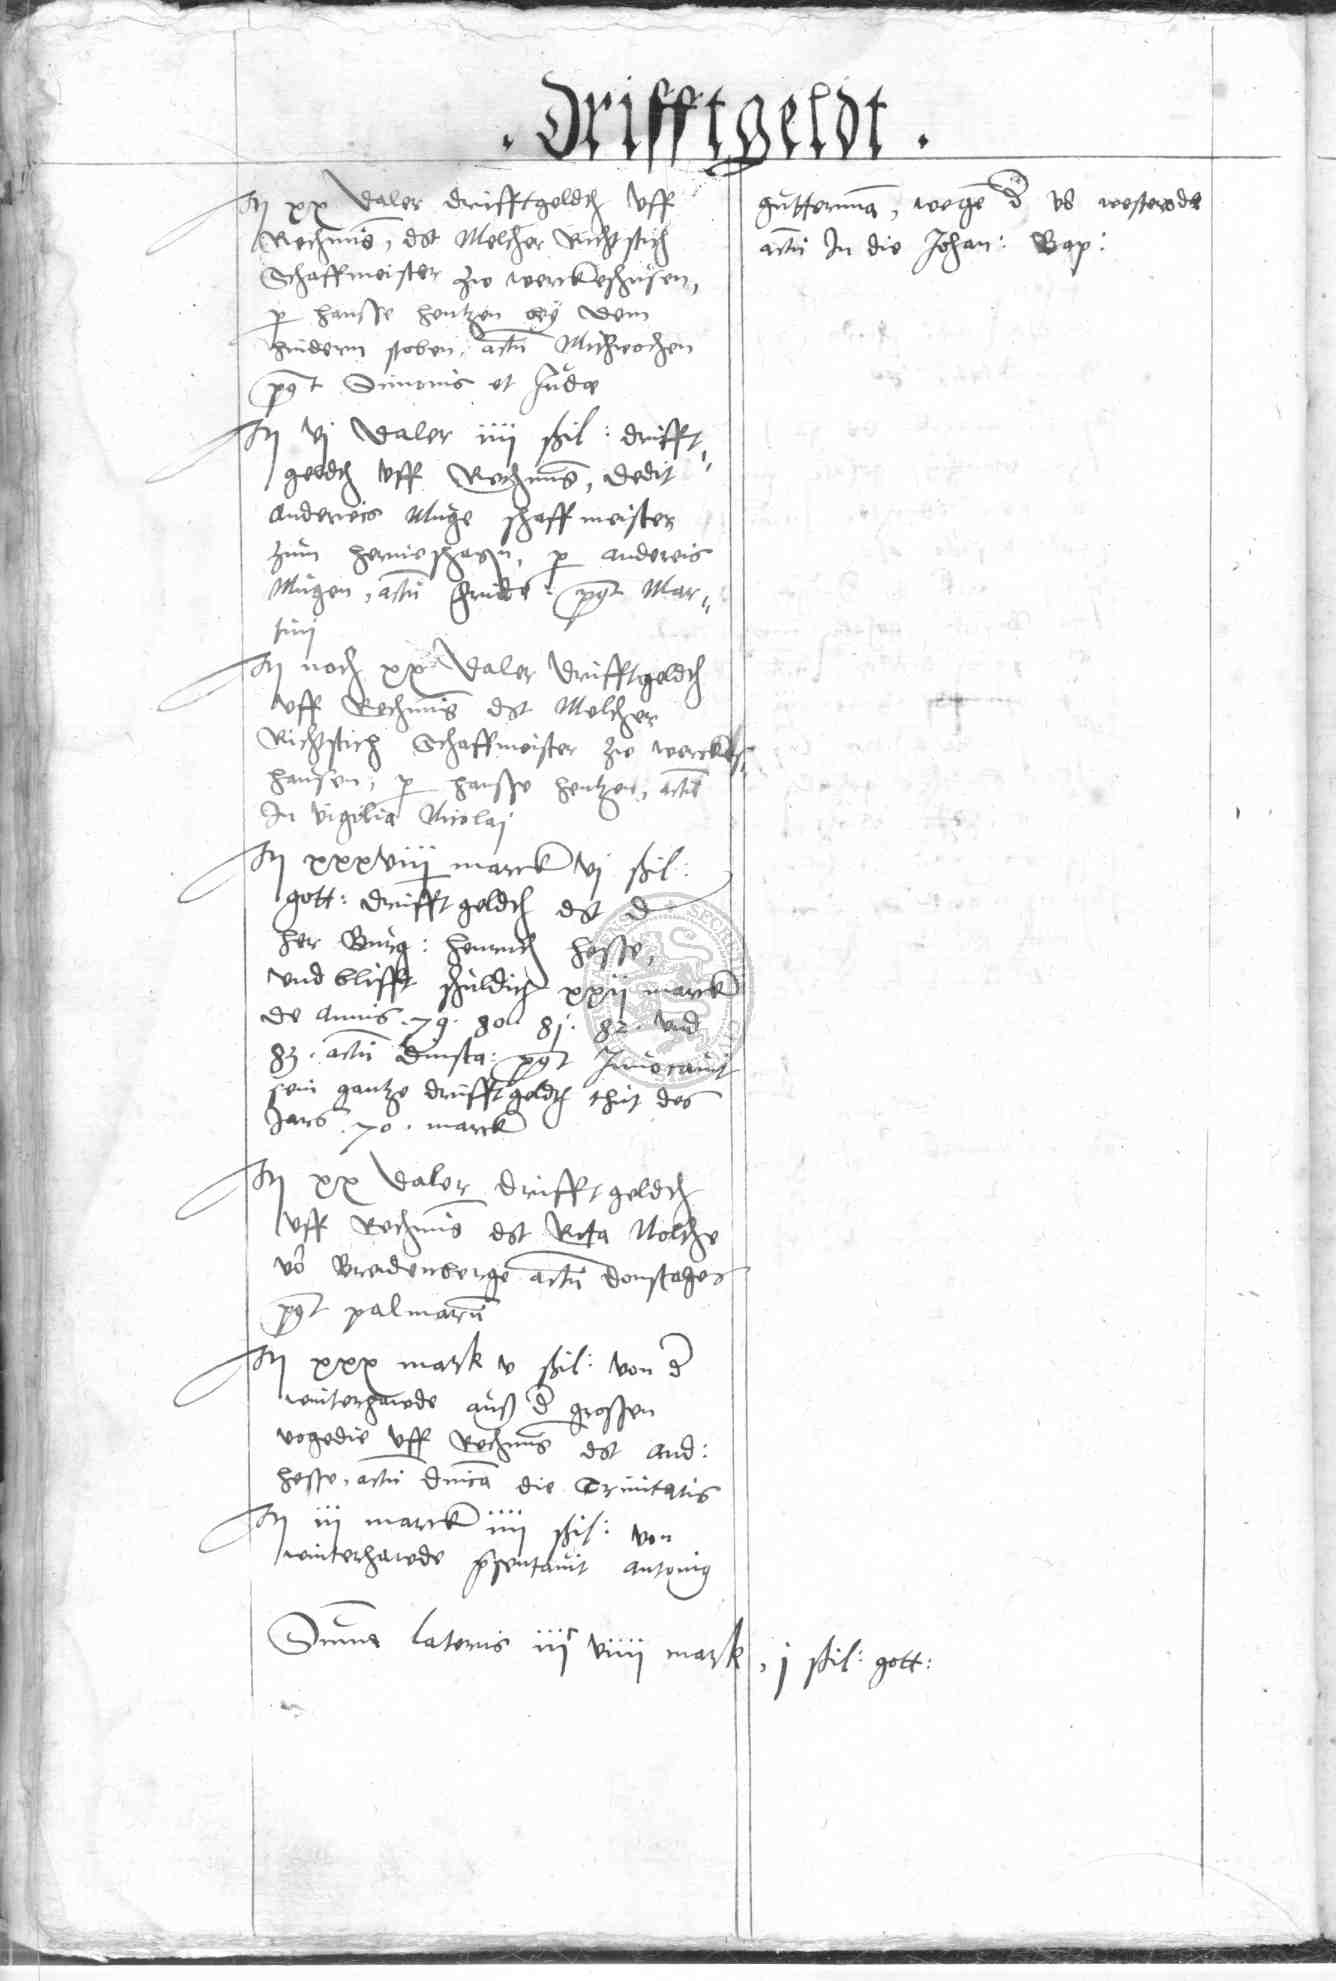 . Drifftgeldt .
It xx Daler driifftgeldt uff
Rechnūs, dt Melcher Richtstich
Schaffmeister zw werckeshusen,
p hansse hentzen bey dem
hindern stoben, actū Mithwochen
post Simonis et Jude
It vj Daler iiii ßil: drifft
geldt uff Rechnūs, dedit
anderies Muge schaffmeister
zum herwishagen, p andereis
Mugen, actū post Mar
tini
It noch xx Daler drifftgeldt
uff Rechnūs dt Melcher
Richtstich Schaffmeister zw werckes
hausen, p hansse hentzen, actū
In vigilia Nicolaj
It xxxviii marck vj ßil:
gott: drifftgeldt dt d
her Burg: henrich hesse,
und blifft schuldich xxij marck
de annis .79. 80. 81. 82. und
83. actū dinsta: post Invocavit
sein gantze drifftgeldt thut des
Jars .70. marck
It xx Daler drifftgeldt
uff Rechnūs dt Nolthe
vō Bredenberge actū donstages
post palmarū
It xxx mark v ßil: von d
winterhawde auß d grossen
vogedie uff Rechnūs dt And:
hesse, actū dnica die Trinitatis
It iii marck iiii ßil: von
winterhawde psentavit antonig
Suma lateris iiic viiii mark, j ßil: gott:
gutterman, wege d vō westerode
actū In die Johan: Bap: